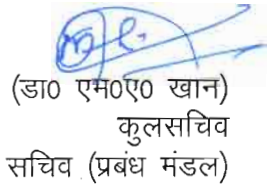 (डा0 एम0ए0 खान)
कुलसचिव
सचिव (प्रबंध मंडल)